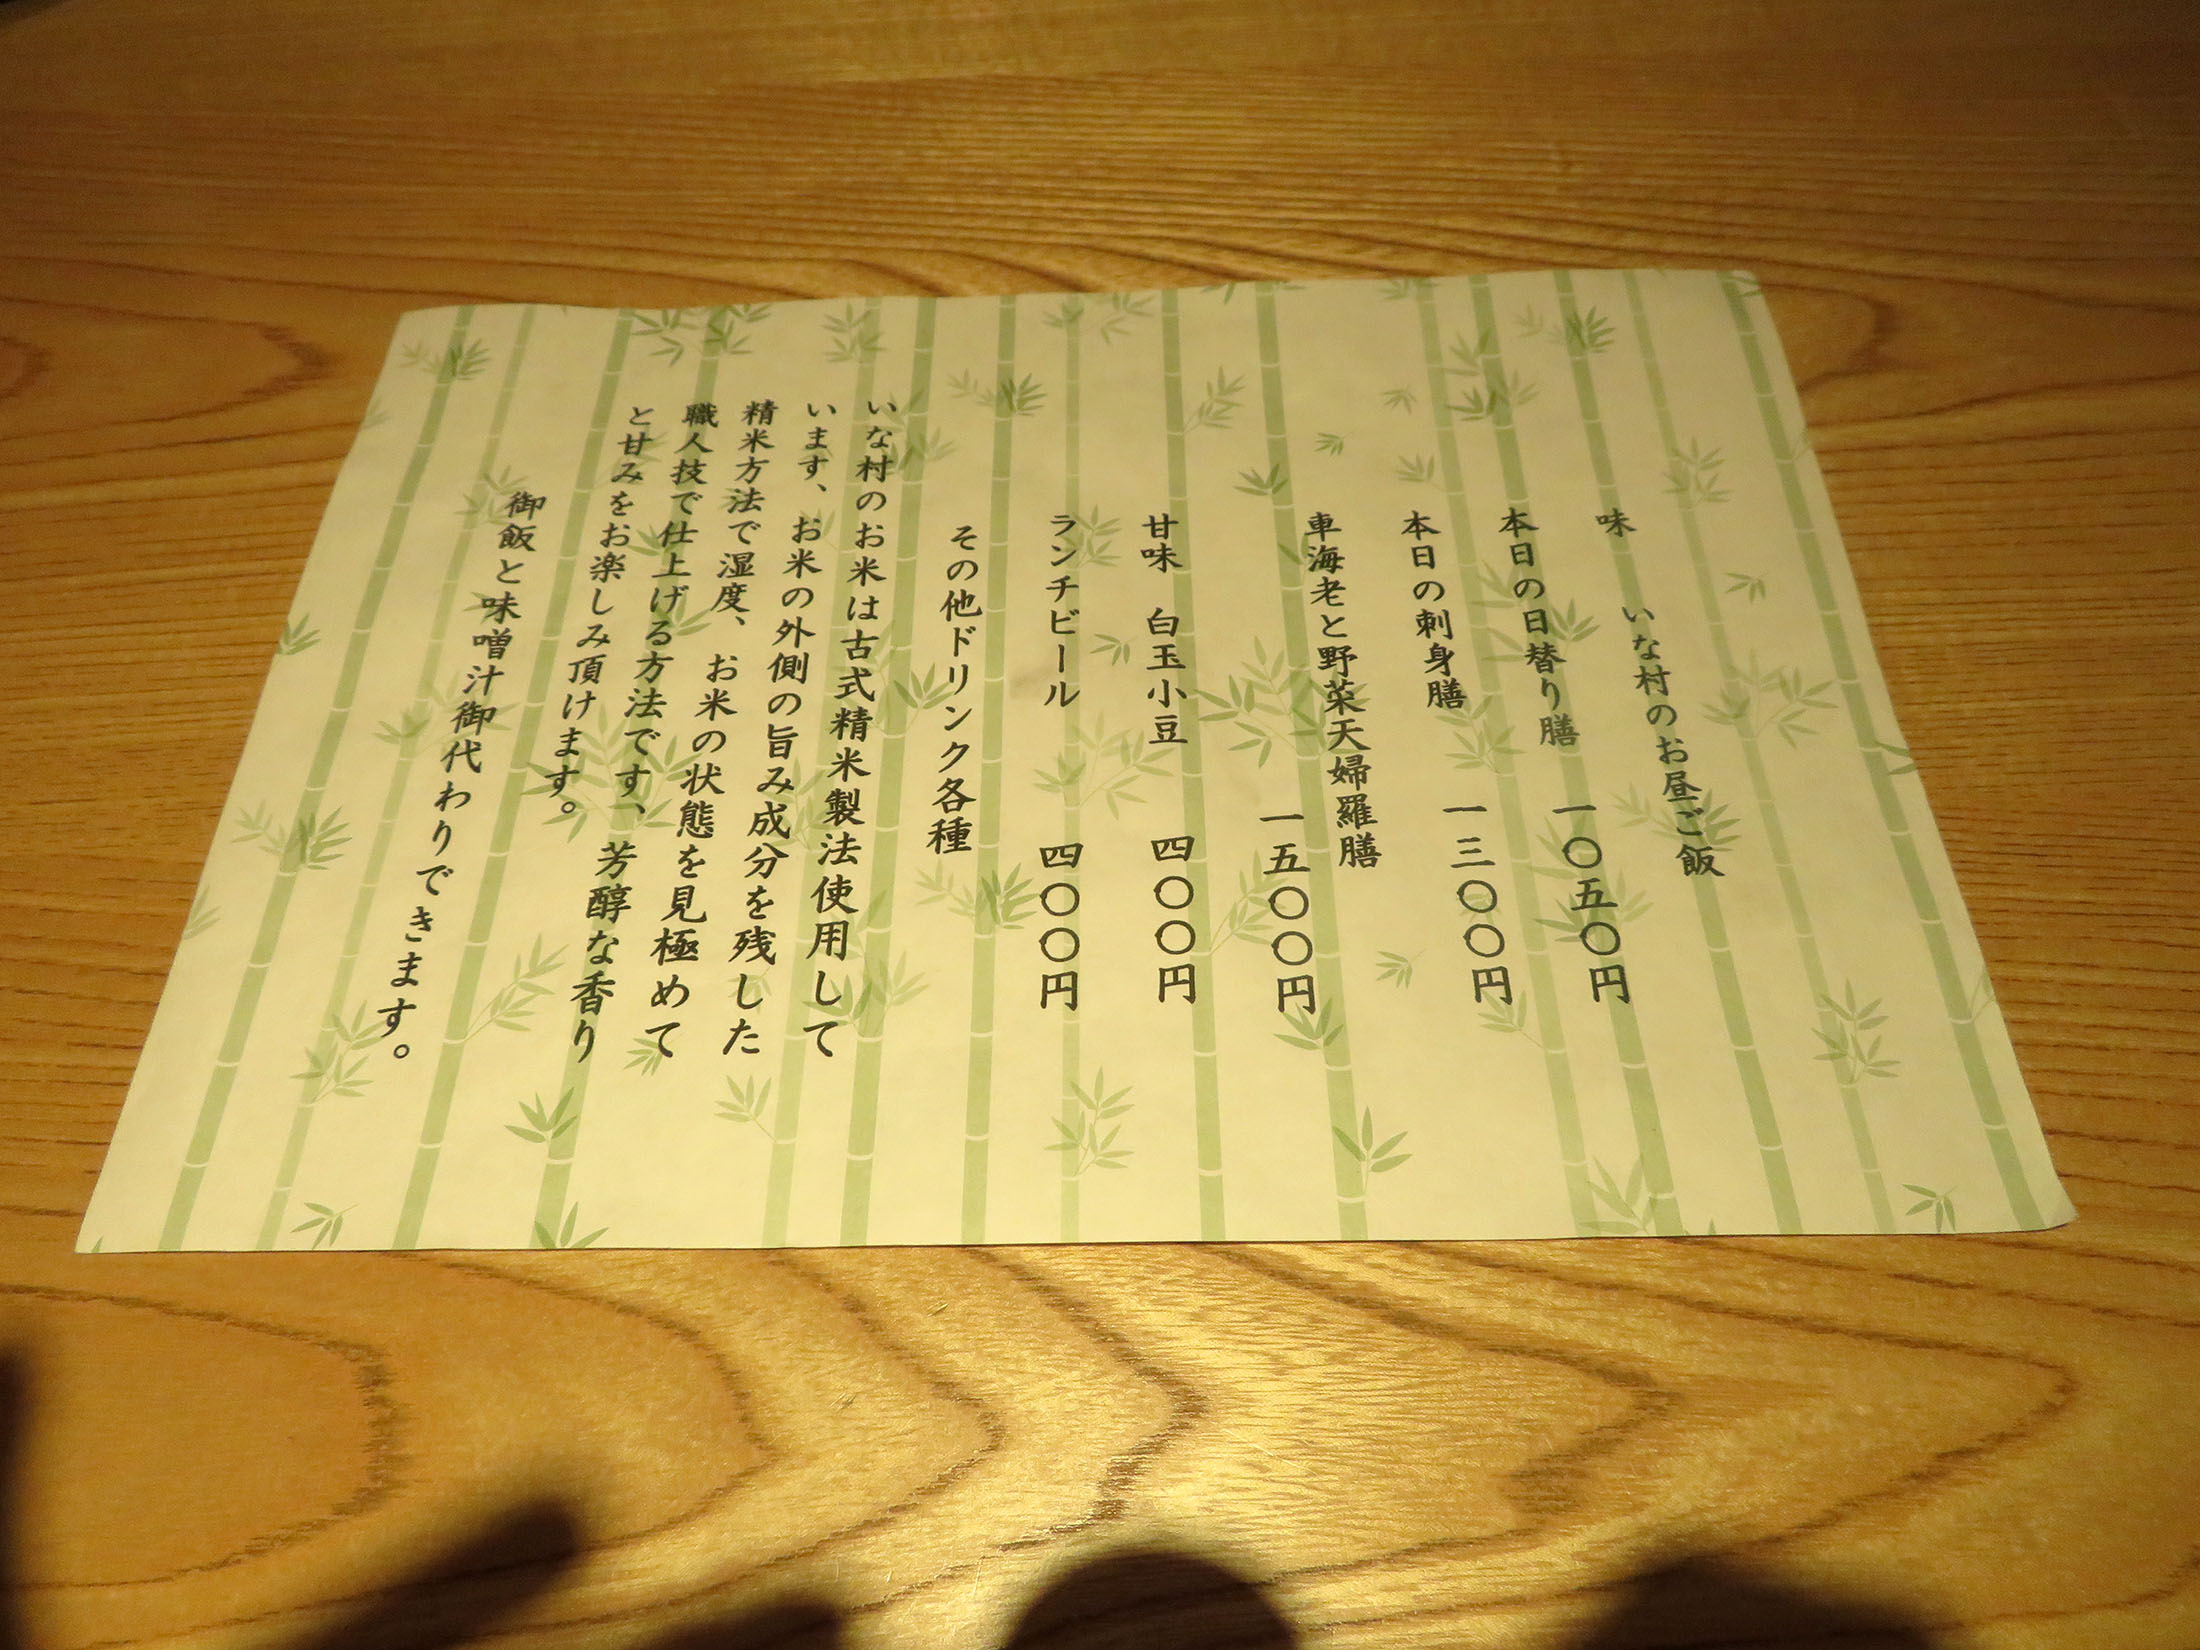 味　いな村のお昼ご飯
本日の日替り膳　一〇五〇円
本日の刺身膳　一三〇〇円
車海老と野菜天婦羅膳
一五〇〇円
甘味　白玉小豆　四〇〇円
ランチビール　四〇〇円
その他ドリンク各種
いな村のお米は古式精米製法使用して
います、お米の外側の旨み成分を残した
精米方法で湿度、お米の状態を見極めて
職人技で仕上げる方法です、芳醇な香り
と甘みをお楽しみ頂けます。
御飯と味噌汁御代わりできます。